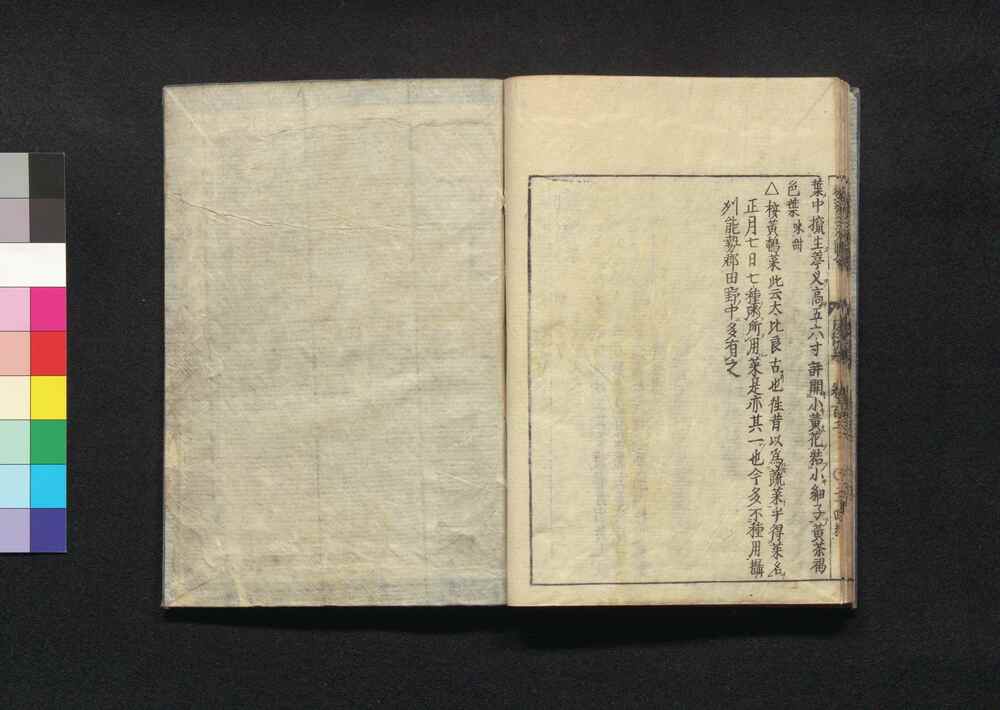 葉中攛生蕚乂高五六寸許開小黄花結小細子黄茶褐
色葉味甜
△按黄鵪菜此云太比良古也徃昔以爲蔬菜乎得菜名
正月七日七種粥所用菜是亦其一也今多不種用攝
刕能勢郡田野中多有之